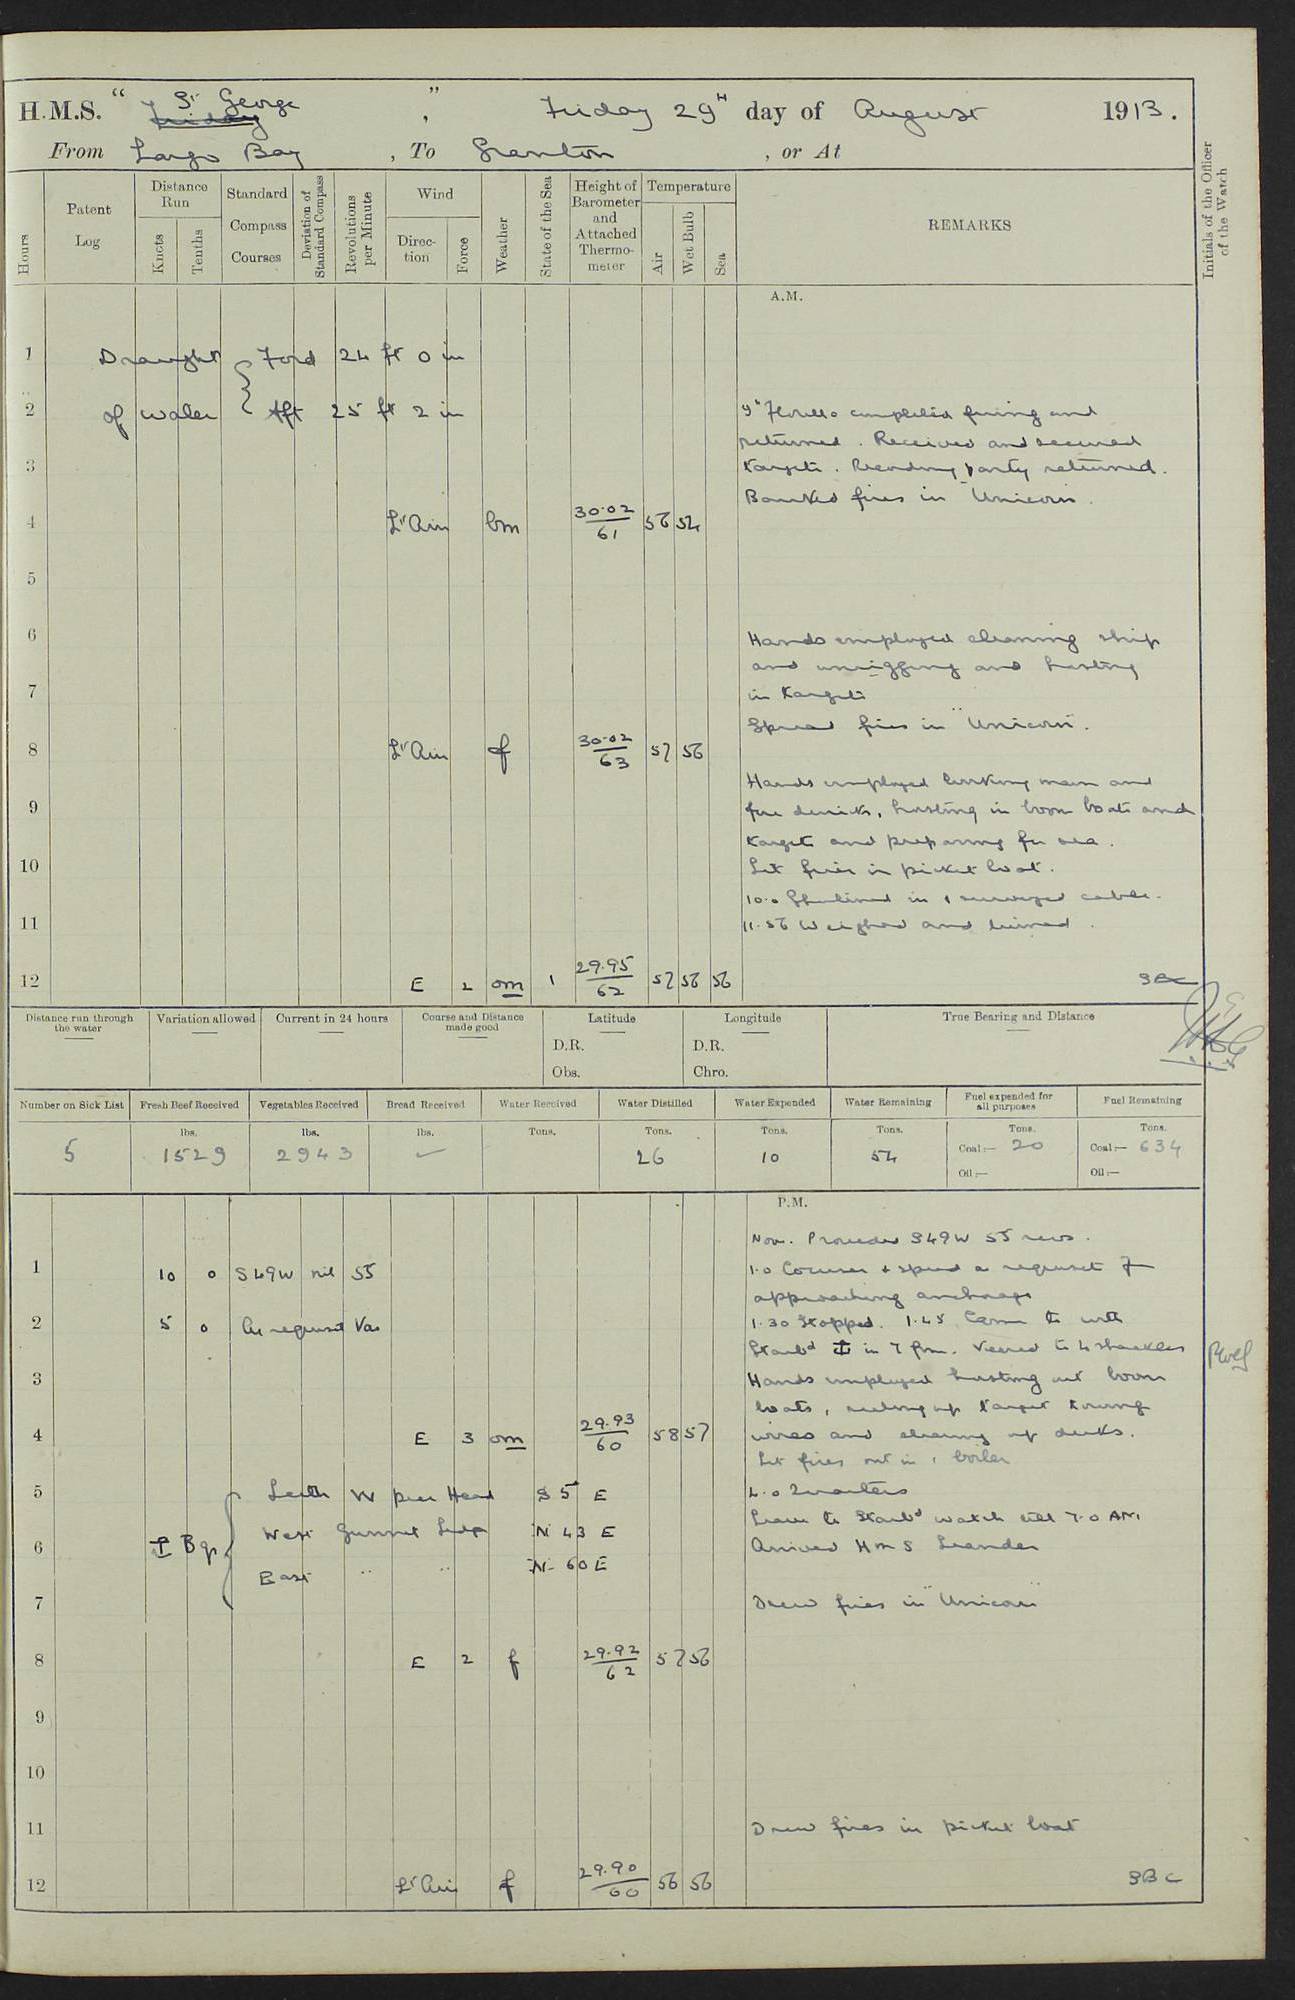 H.M.S. " St George " , Friday 29th day of August 1913.
From Largo Bay , To Granton , or At
Hours
Patent Log
Distance Run
Knots
Tenths
Standard Compass Courses
Deviation of Standard Compass
Revolutions per Minute
Wind
Direction
Force
Weather
State of the Sea
Height of Barometer and Attached Thermometer
Temperature
Air
Wet Bulb
Sea
REMARKS
Initials of the Officer of the Watch
A.M.
1 Draught { Ford 24 ft 0 in
2 of water { Aft 25 ft 2 in
completed firing and
returned. Received and secured
3 targets. Recording party returned.
Banked fires in "Unicorn".
4 Lt Airs bm 30.02/61 56 54
5
6 Hands employed cleaning ship
and unrigging and hoisting
7 in targets
Spread fires in "Unicorn".
8 Lt Airs f 30.02/63 57 56
Hands employed working main and
9 fore derricks, hoisting in boom boats and
targets and preparing for sea.
10 Lit fires in picket boat.
10.0 Shortened in & surveyed cable.
11 11.56 Weighed and turned.
12 E 2 om 1 29.95/62 57 56 56 SBC
Distance run through the water
Variation allowed
Current in 24 hours
Course and Distance made good
Latitude
D.R.
Obs.
Longitude
D.R.
Chro.
True Bearing and Distance
Number on Sick List
Fresh Beef Received
Vegetables Received
Bread Received
Water Received
Water Distilled
Water Expended
Water Remaining
Fuel expended for all purposes
Fuel Remaining
lbs. lbs. lbs. Tons. Tons. Tons. Tons. Tons. Tons.
5 1529 2943 ✓ 26 10 54 Coal:— 20 Coal:— 634
Oil:— Oil:—
P.M.
Noon. Proceeded S49W 55 revs.
1 10 0 S49W nil 55 1.0 Courses & speed as requisite for
approaching anchorage
2 5 0 As requisite Var 1.30 Stopped. 1.45 Came to with
Starbd ⚓ in 7 fms. Veered to 4 shackles
3 Hands employed hoisting out boom
boats, reeling up target towing
4 E 3 om 29.93/60 58 57 wires and clearing up decks.
Let fires out in 1 boiler
5 Leith W pier Head S 5 E 4.0 Quarters
West Gunnet Ledge N 43 E Leave to Starbd watch till 7.0 AM.
6 ⚓ Bgs { Arrived HMS Leander
East " " N 60 E
7 Drew fires in "Unicorn"
8 E 2 f 29.92/62 57 56
9
10
11 Drew fires in picket boat
12 Lt Airs f 29.90/60 56 56 SBC